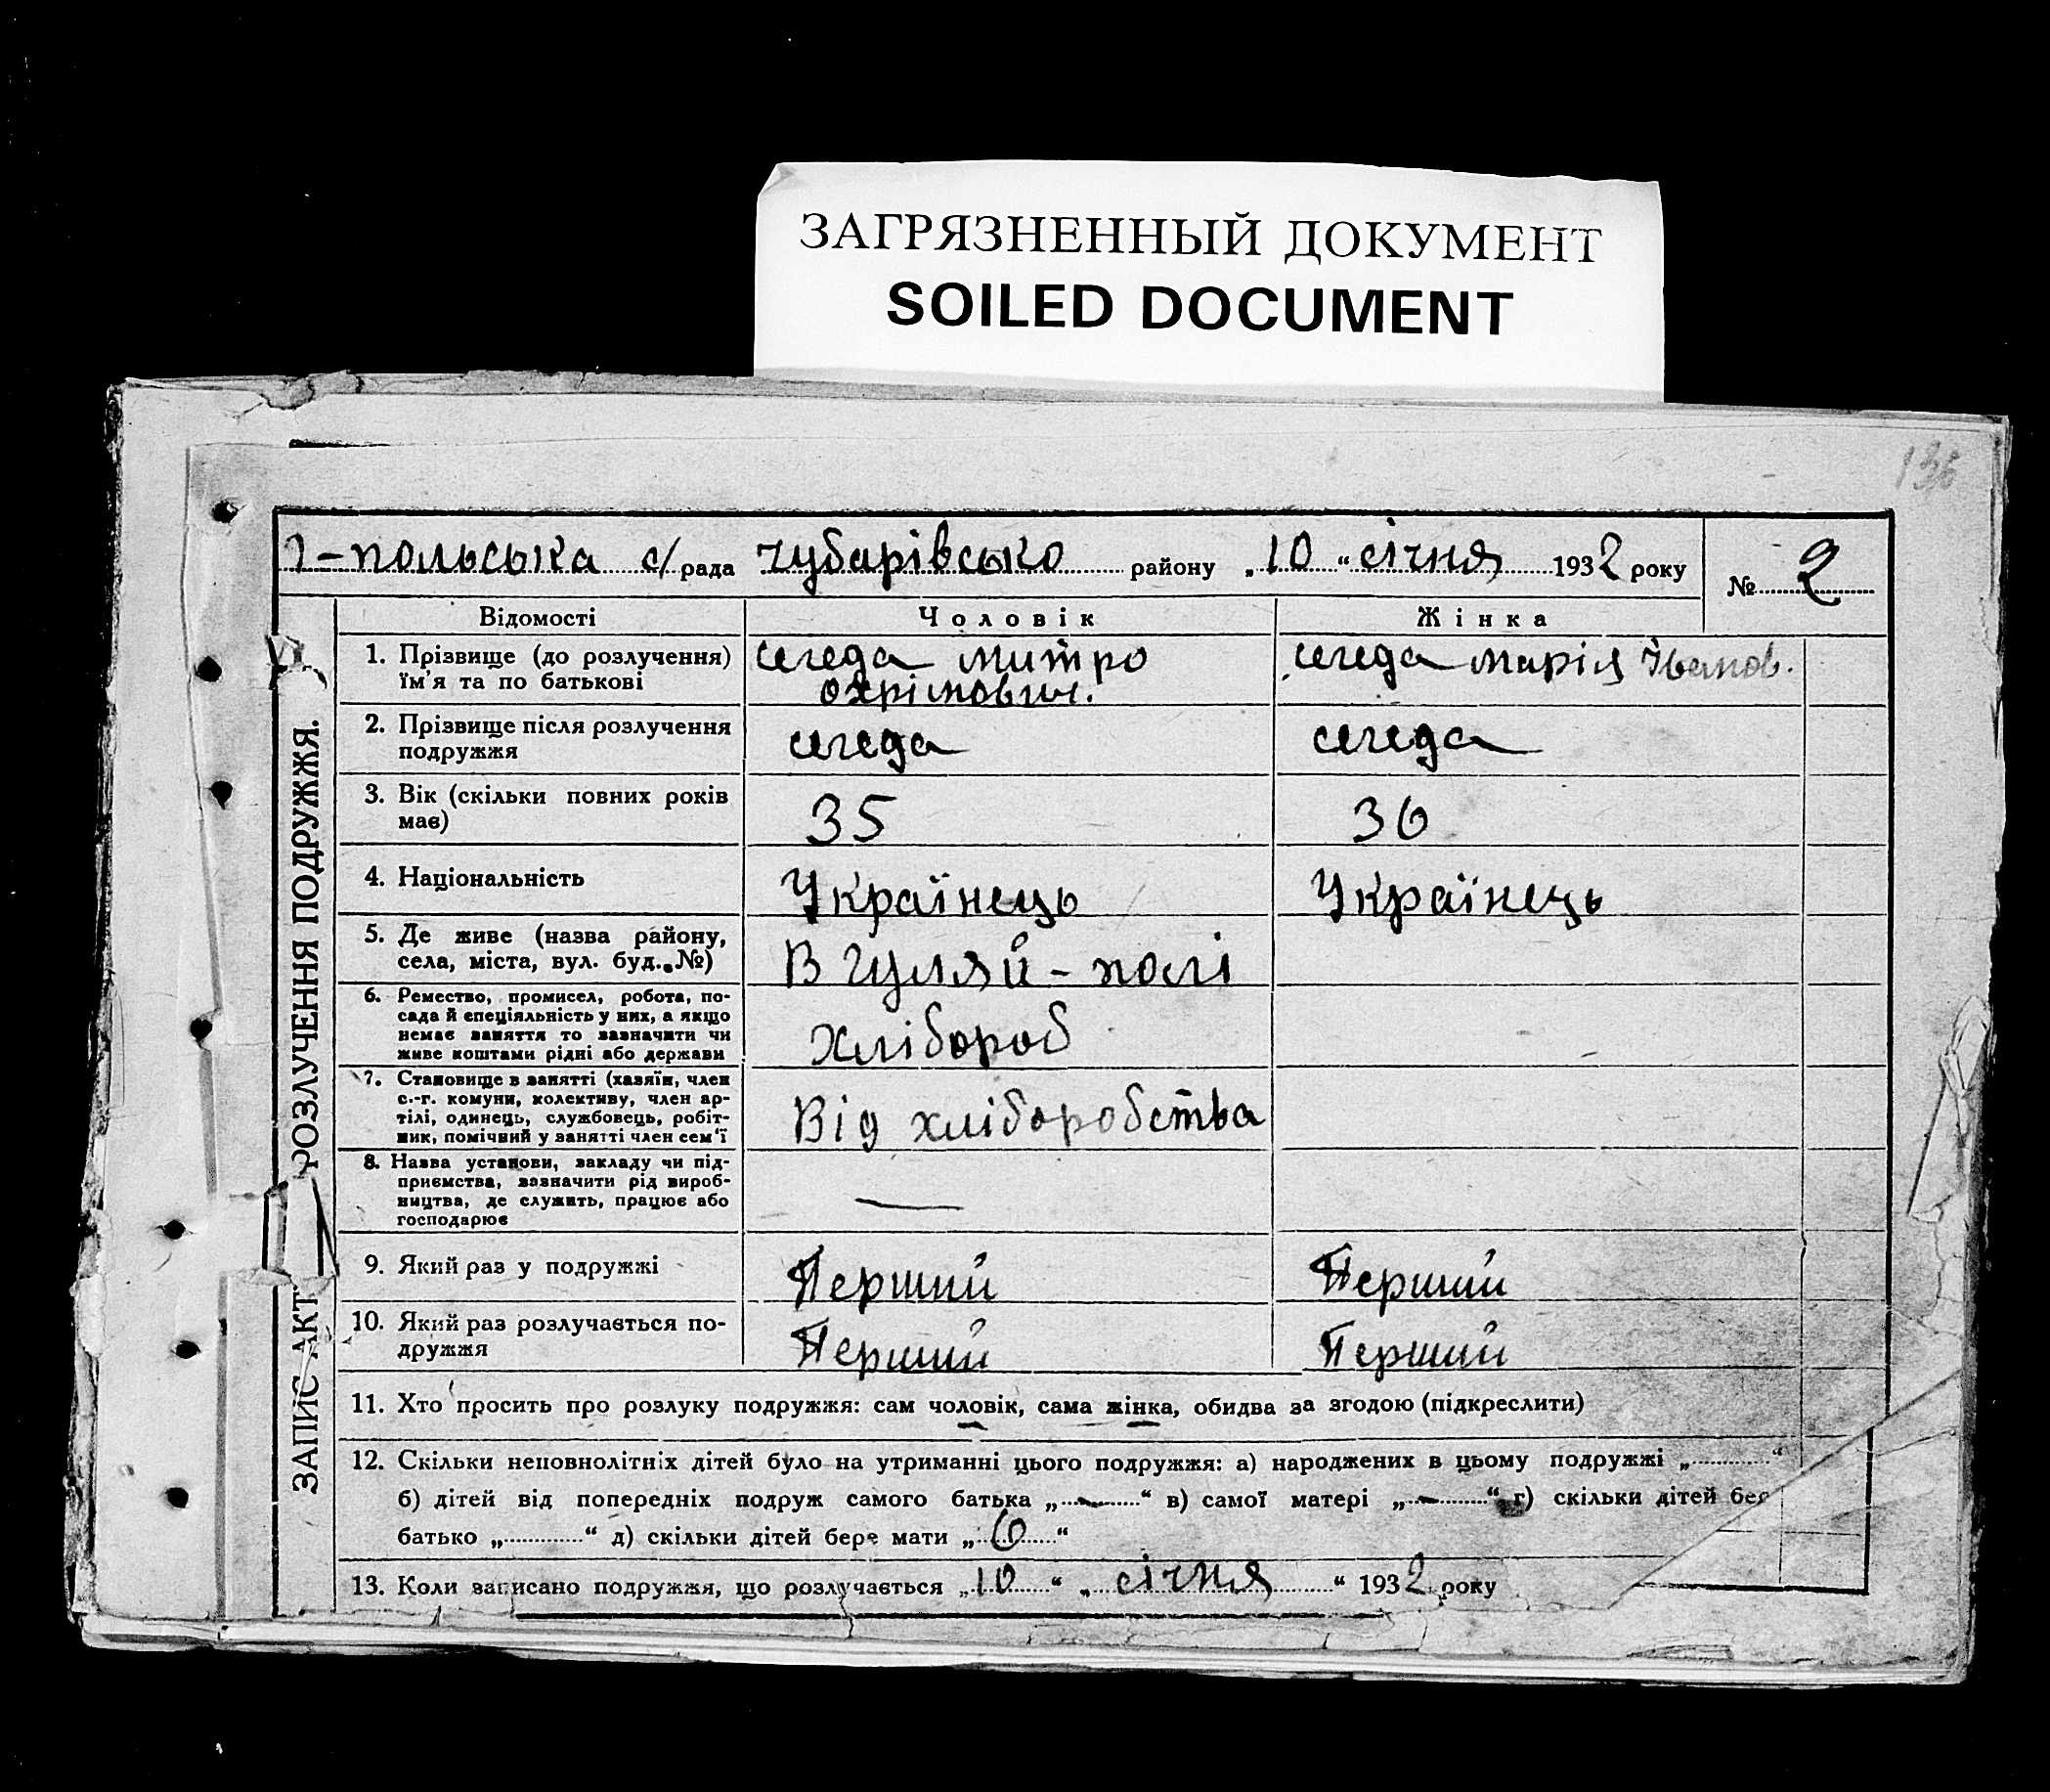 ЗАГРЯЗНЕННЫЙ ДОКУМЕНТ
SOILED DOCUMENT
136
Г-польська с/рада чубарівсько району „10“ січня 1932 року
№ 2
ЗАПИС АКТ РОЗЛУЧЕННЯ ПОДРУЖЖЯ.
Відомості Чоловік Жінка
1. Прізвище (до розлучення) сегеда митро сегеда марія Іванов.
ім'я та по батькові охрімович.
2. Прізвище після розлучення сегеда сегеда
подружжя
3. Вік (скільки повних років 35 36
має)
4. Національність Українець Українець
5. Де живе (назва району, В гуляй-полі
села, міста, вул. буд. №)
6. Ремество, промисел, робота, по-
сада й спеціяльність у них, а якщо Хлібороб
немає заняття то зазначити чи
живе коштами рідні або держави
7. Становище в занятті (хазяїн, член
с.-г. комуни, колективу, член ар- Від хліборобства
тілі, одинець, службовець, робіт-
ник, помічний у занятті член сем'ї
8. Назва установи, закладу чи під-
приємства, зазначити рід вироб- —
ництва, де служить, працює або
господарює
9. Який раз у подружжі Перший Перший
10. Який раз розлучається по- Перший Перший
дружжя
11. Хто просить про розлуку подружжя: сам чоловік, сама жінка, обидва за згодою (підкреслити)
12. Скільки неповнолітніх дітей було на утриманні цього подружжя: а) народжених в цьому подружжі „.............“
б) дітей від попередніх подруж самого батька „—“ в) самої матері „—“ г) скільки дітей бере
батько „.............“ д) скільки дітей бере мати „6“
13. Коли записано подружжя, що розлучається „10“ „січня“ 1932 року